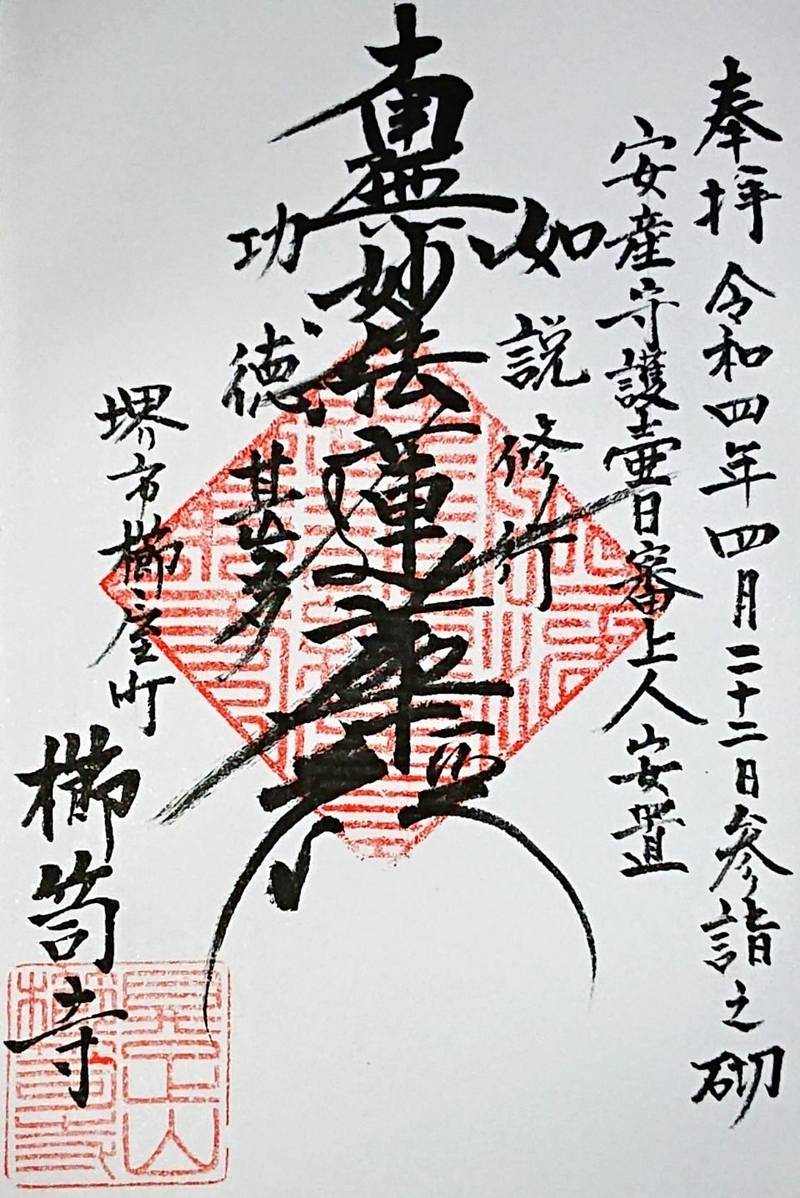 奉拝 令和四年四月二十二日参詣之砌
安産守護壷日審上人安置
如説修行
南無妙法蓮華経
功徳甚多
堺市櫛屋町
櫛笥寺